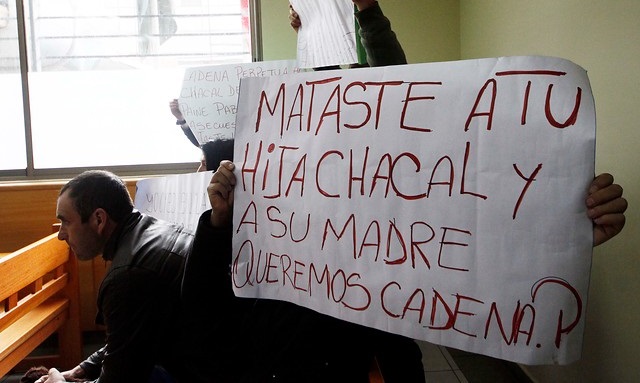 CADENA PERPETUA
CHACAL DE
PAINE PAB
SECUES
MATASTE A TU
HIJA CHACAL Y
A SU MADRE
QUEREMOS CADENA.P